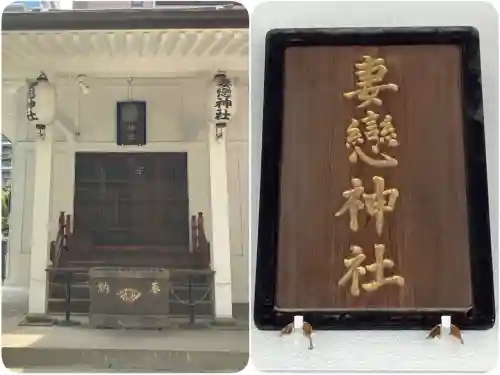 妻戀神社
妻戀神社
奉納
妻戀神社